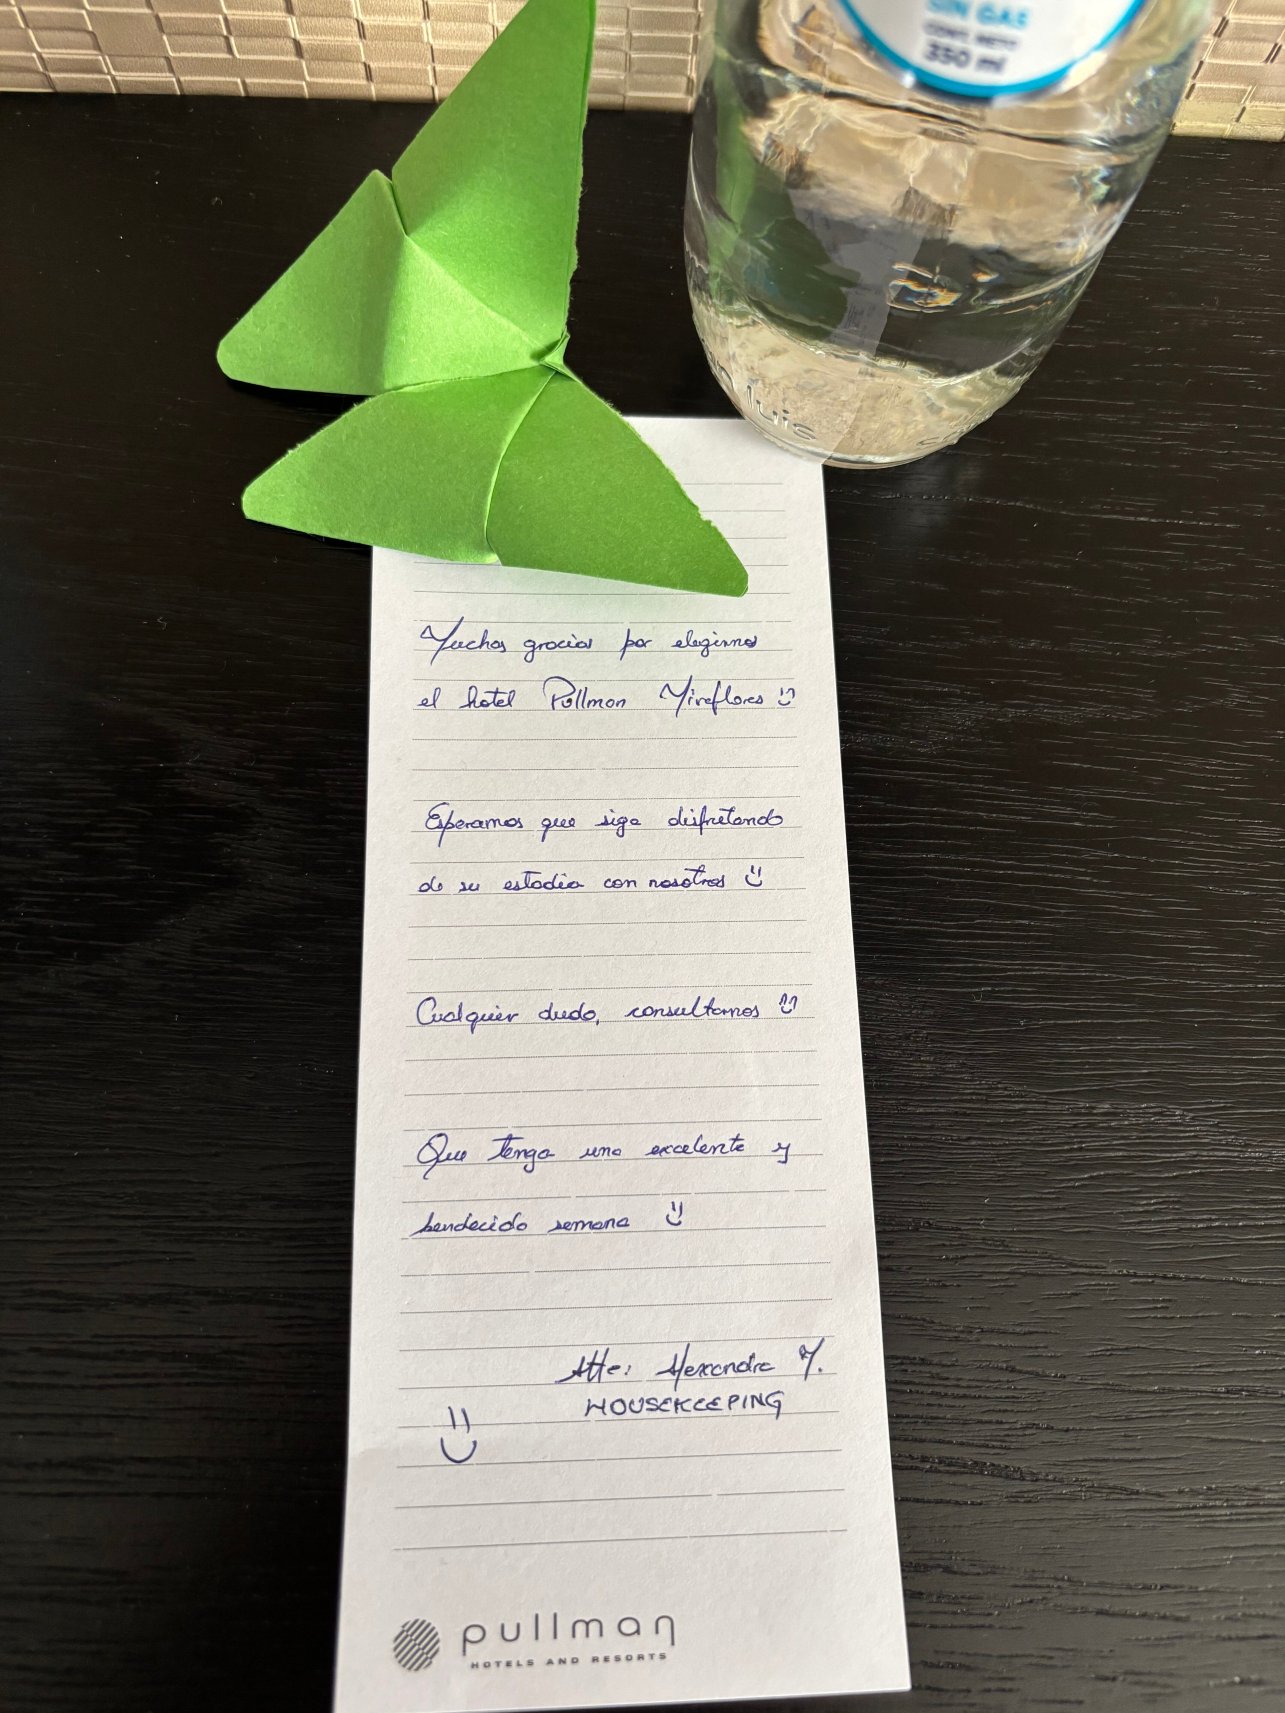 SIN GAS
CONT. NETO
350 ml
luis
Muchas gracias por elegirnos
el hotel Pullman Miraflores
Esperamos que siga disfrutando
de su estadía con nosotros
Cualquier duda, consultarnos
Que tenga una excelente y
bendecida semana
Atte: Alexandra Y.
HOUSEKEEPING
pullman
HOTELS AND RESORTS